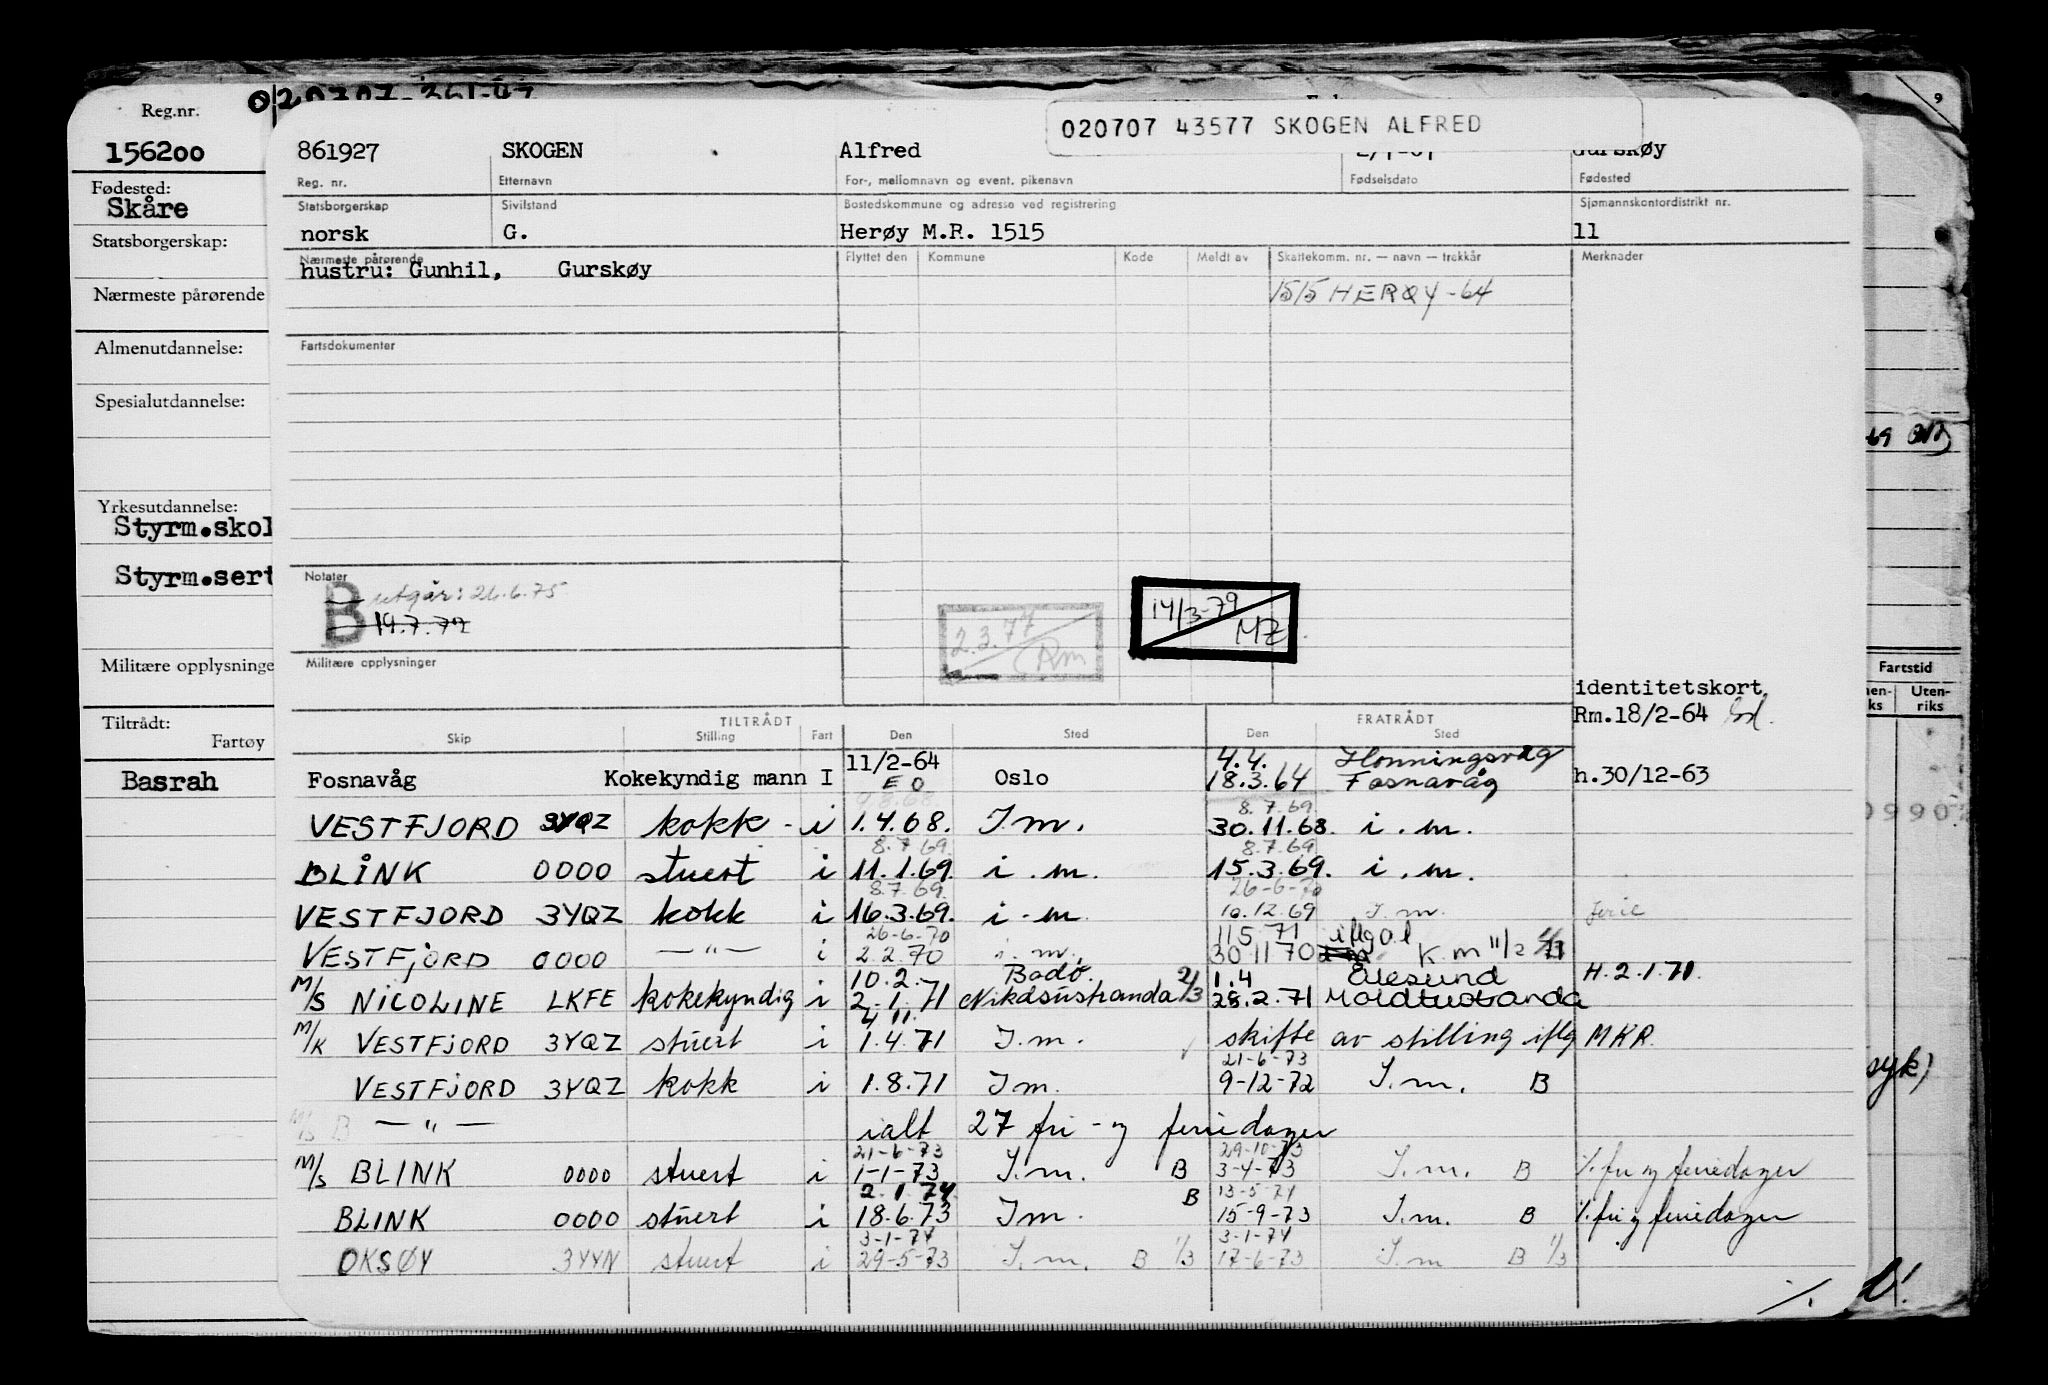 Reg.nr.
156200
Fødested:
Skåre
Statsborgerskap:
Nærmeste pårørende
Almenutdannelse:
Spesialutdannelse:
Yrkesutdannelse:
Styrm.skol
Styrm.sert
Militære opplysninge
Tiltrådt:
Fartøy
Basrah
020707 43577 SKOGEN ALFRED
861927 SKOGEN Alfred Gurskøy
Reg. nr. Etternavn For-, mellomnavn og event. pikenavn Fødselsdato Fødested
Statsborgerskap Sivilstand Bostedskommune og adresse ved registrering Sjømannskontordistrikt nr.
norsk G. Herøy M.R. 1515 11
Nærmeste pårørende Flyttet den Kommune Kode Meldt av Skattekomm. nr. — navn — trekkår Merknader
hustru: Gunhil, Gurskøy
1515 HERØY-64
Fartsdokumenter
Notater
B utgår: 26.6.75
19.7.72
14/3-79
MZ
2.3.77
Rm
Militære opplysninger
identitetskort
Rm.18/2-64
TILTRÅDT FRATRÅDT
Skip Stilling Fart Den Sted Den Sted
11/2-64 4.4. Honningsvåg
Fosnavåg Kokekyndig mann I E O Oslo 18.3.64 Fosnavåg h.30/12-63
8.7.69
VESTFJORD 3YQZ kokk - i 1.4.68. I.m. 30.11.68. i.m.
8.7.69. 8.7.69
BLINK 0000 stuert i 11.1.69. i.m. 15.3.69. i.m.
8.7.69. 26-6-70
VESTFJORD 3YQZ kokk i 16.3.69. i.m. 10.12.69 I.m. ferie
26-6-70 11 5 71 iflg O.l
VESTFJORD 0000 —"— i 2.2.70 i.m. 30 11 70 K.m 11/2 71
10.2. Bodø. 2/3 1.4 Ålesund H.2.1.71.
M/S NICOLINE LKFE kokekyndig i 2.1.71 28.2.71
4/11
M/K VESTFJORD 3YQZ stuert i 1.4.71 I.m. skifte av stilling iflg MKR.
21-6-73
VESTFJORD 3YQZ kokk i 1.8.71 I m. 9-12-72 I.m. B
M/S B —"— ialt 27 fri- og feriedager
21-6-73 29-10-73
M/S BLINK 0000 stuert i 1-1-73 I.m. B 3-4-73 I.m. B ·/. fri og feriedager
2.1.74 B 13-5-74
BLINK 0000 stuert i 18.6.73 I m. 15-9-73 I.m. B ·/. fri og feriedager
3-1-74 3-1-74
OKSØY 3YYN stuert i 29-5-73 I.m. B 1/3 17-6-73 I.m B 1/3
·/.
9
Fartstid
Uten-
ks riks
syk)